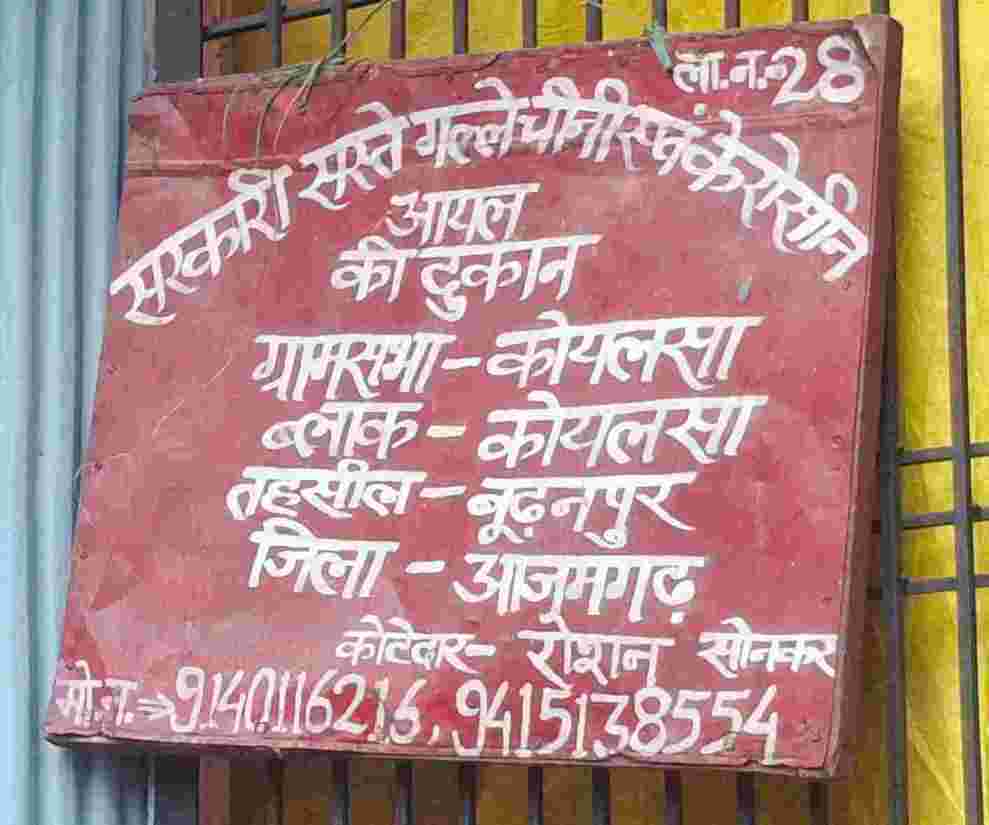 ला.न.-28
सरकारी सस्ते गल्ले चीनी एवं केरोसीन
आयल
की दुकान
ग्रामसभा - कोयलसा
ब्लाक - कोयलसा
तहसील - बूढ़नपुर
जिला - आजमगढ़
कोटेदार - रोशन सोनकर
मो.न.⇒ 9140116216, 9415138554